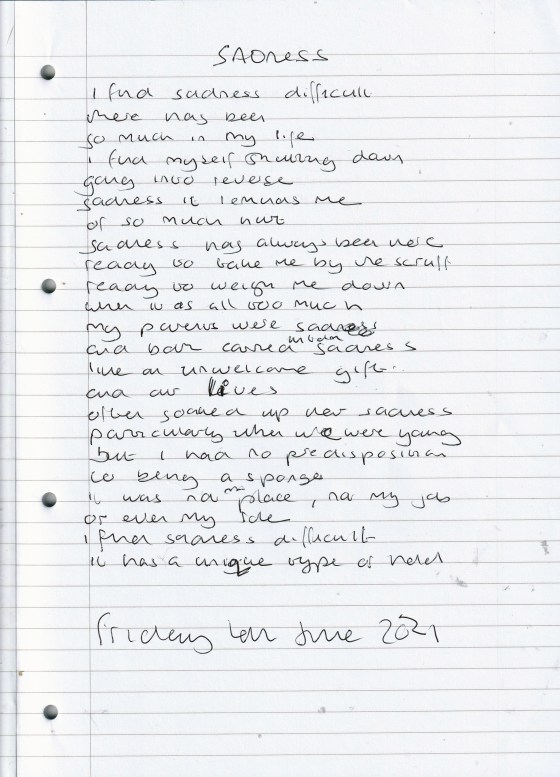 SADNESS
I find sadness difficult
there has been
so much in my life
I find myself slowing down
going into reverse
sadness it reminds me
of so much hurt
sadness has always been here
ready to take me by the scruff
ready to weigh me down
when it as all too much
my parents were sadness
and both carried sadness
like an unwelcome gift
and our lives
often soaked up her sadness
particularly when we were young
but I had no predisposition
to being a sponge
it was not my place, not my job
or even my role
I find sadness difficult
it has a unique type of hold
Friday 4th June 2021